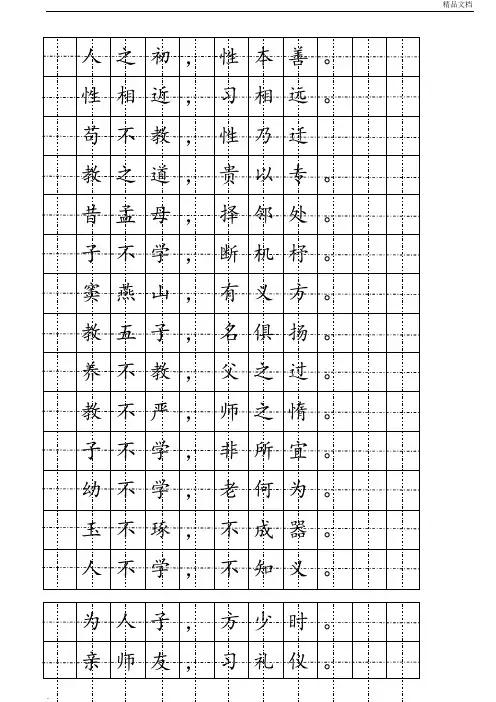 精品文档
人之初，性本善。
性相近，习相远。
苟不教，性乃迁
教之道，贵以专。
昔孟母，择邻处。
子不学，断机杼。
窦燕山，有义方。
教五子，名俱扬。
养不教，父之过。
教不严，师之惰。
子不学，非所宜。
幼不学，老何为。
玉不琢，不成器。
人不学，不知义。
为人子，方少时。
亲师友，习礼仪。